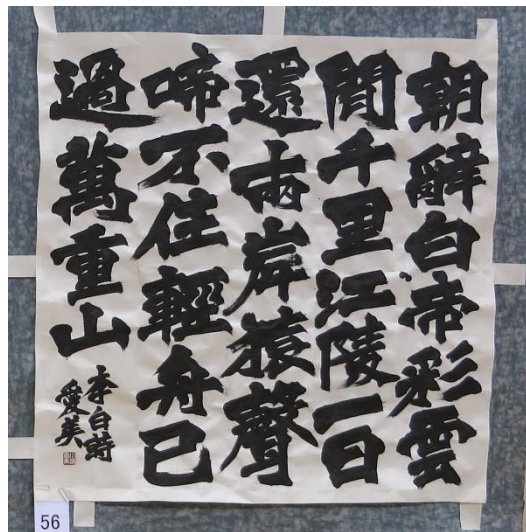 朝辭白帝彩雲
間千里江陵一日
還兩岸猿聲
啼不住輕舟已
過萬重山
李白詩
愛美
56